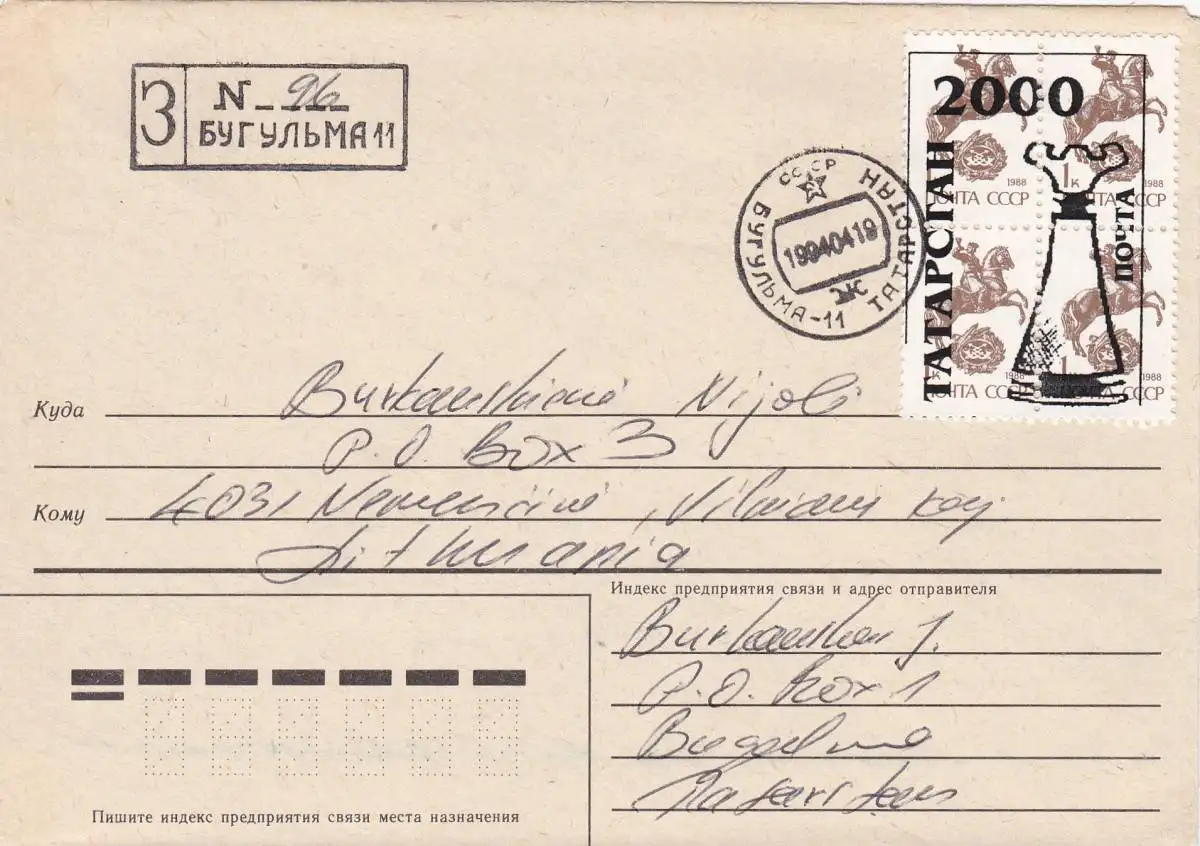 З
N 96
БУГУЛЬМА 11
СССР
БУГУЛЬМА-11 ТАТАРСТАН
19940419
Ж
2000
ТАТАРСТАН
ПОЧТА
1988
1к
1988
ПОЧТА СССР
ПОЧТА СССР
1988
1к
1988
ПОЧТА СССР
ПОЧТА СССР
Куда
Nijolė
P.O. Box 3
Кому
4031 Nemenčinė, Vilniaus raj
Lithuania
Индекс предприятия связи и адрес отправителя
J.
P.O. Box 1
Bugulma
Tatarstan
Пишите индекс предприятия связи места назначения